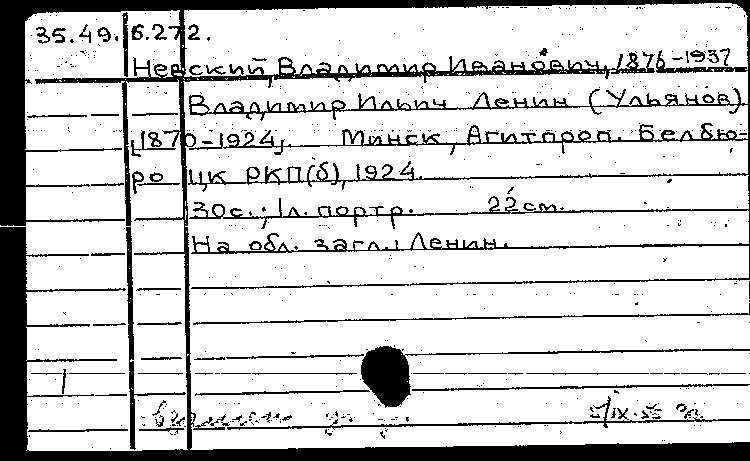 35.49.6.272.
Невский, Владимир Иванович, 1876-1937
Владимир Ильич Ленин (Ульянов)
[1870-1924]. Минск, Агитпроп. Белбю-
ро ЦК РКП(б), 1924.
30с.; 1л. портр. 22см.
На обл. загл.: Ленин.